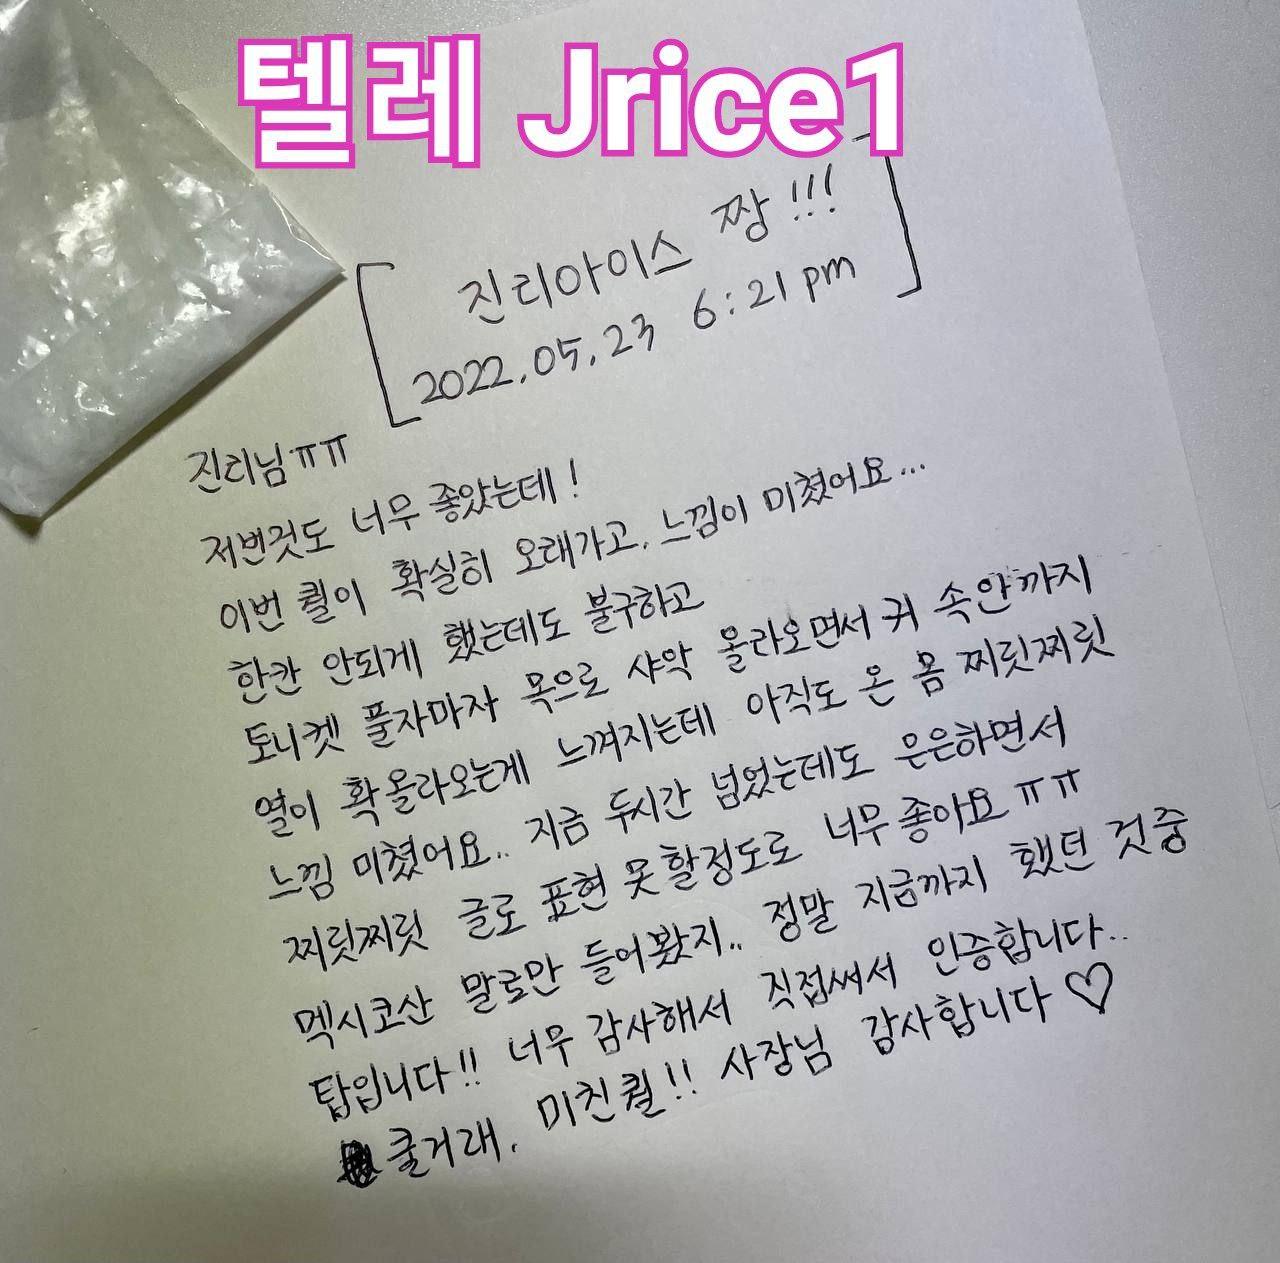 텔레 Jrice1
진리아이스 짱!!!
2022.05.23 6:21 pm
진리님ㅠㅠ
저번것도 너무 좋았는데!
이번 퀄이 확실히 오래가고, 느낌이 미쳤어요...
한칸 안되게 했는데도 불구하고
토니켓 풀자마자 목으로 샤악 올라오면서 귀 속안까지
열이 확올라오는게 느껴지는데 아직도 온 몸 찌릿찌릿
느낌 미쳤어요.. 지금 두시간 넘었는데도 은은하면서
찌릿찌릿 글로 표현 못할정도로 너무좋아요ㅠㅠ
멕시코산 말로만 들어봤지.. 정말 지금까지 했던 것중
탑입니다!! 너무 감사해서 직접써서 인증합니다..
쿨거래, 미친퀄!! 사장님 감사합니다♡